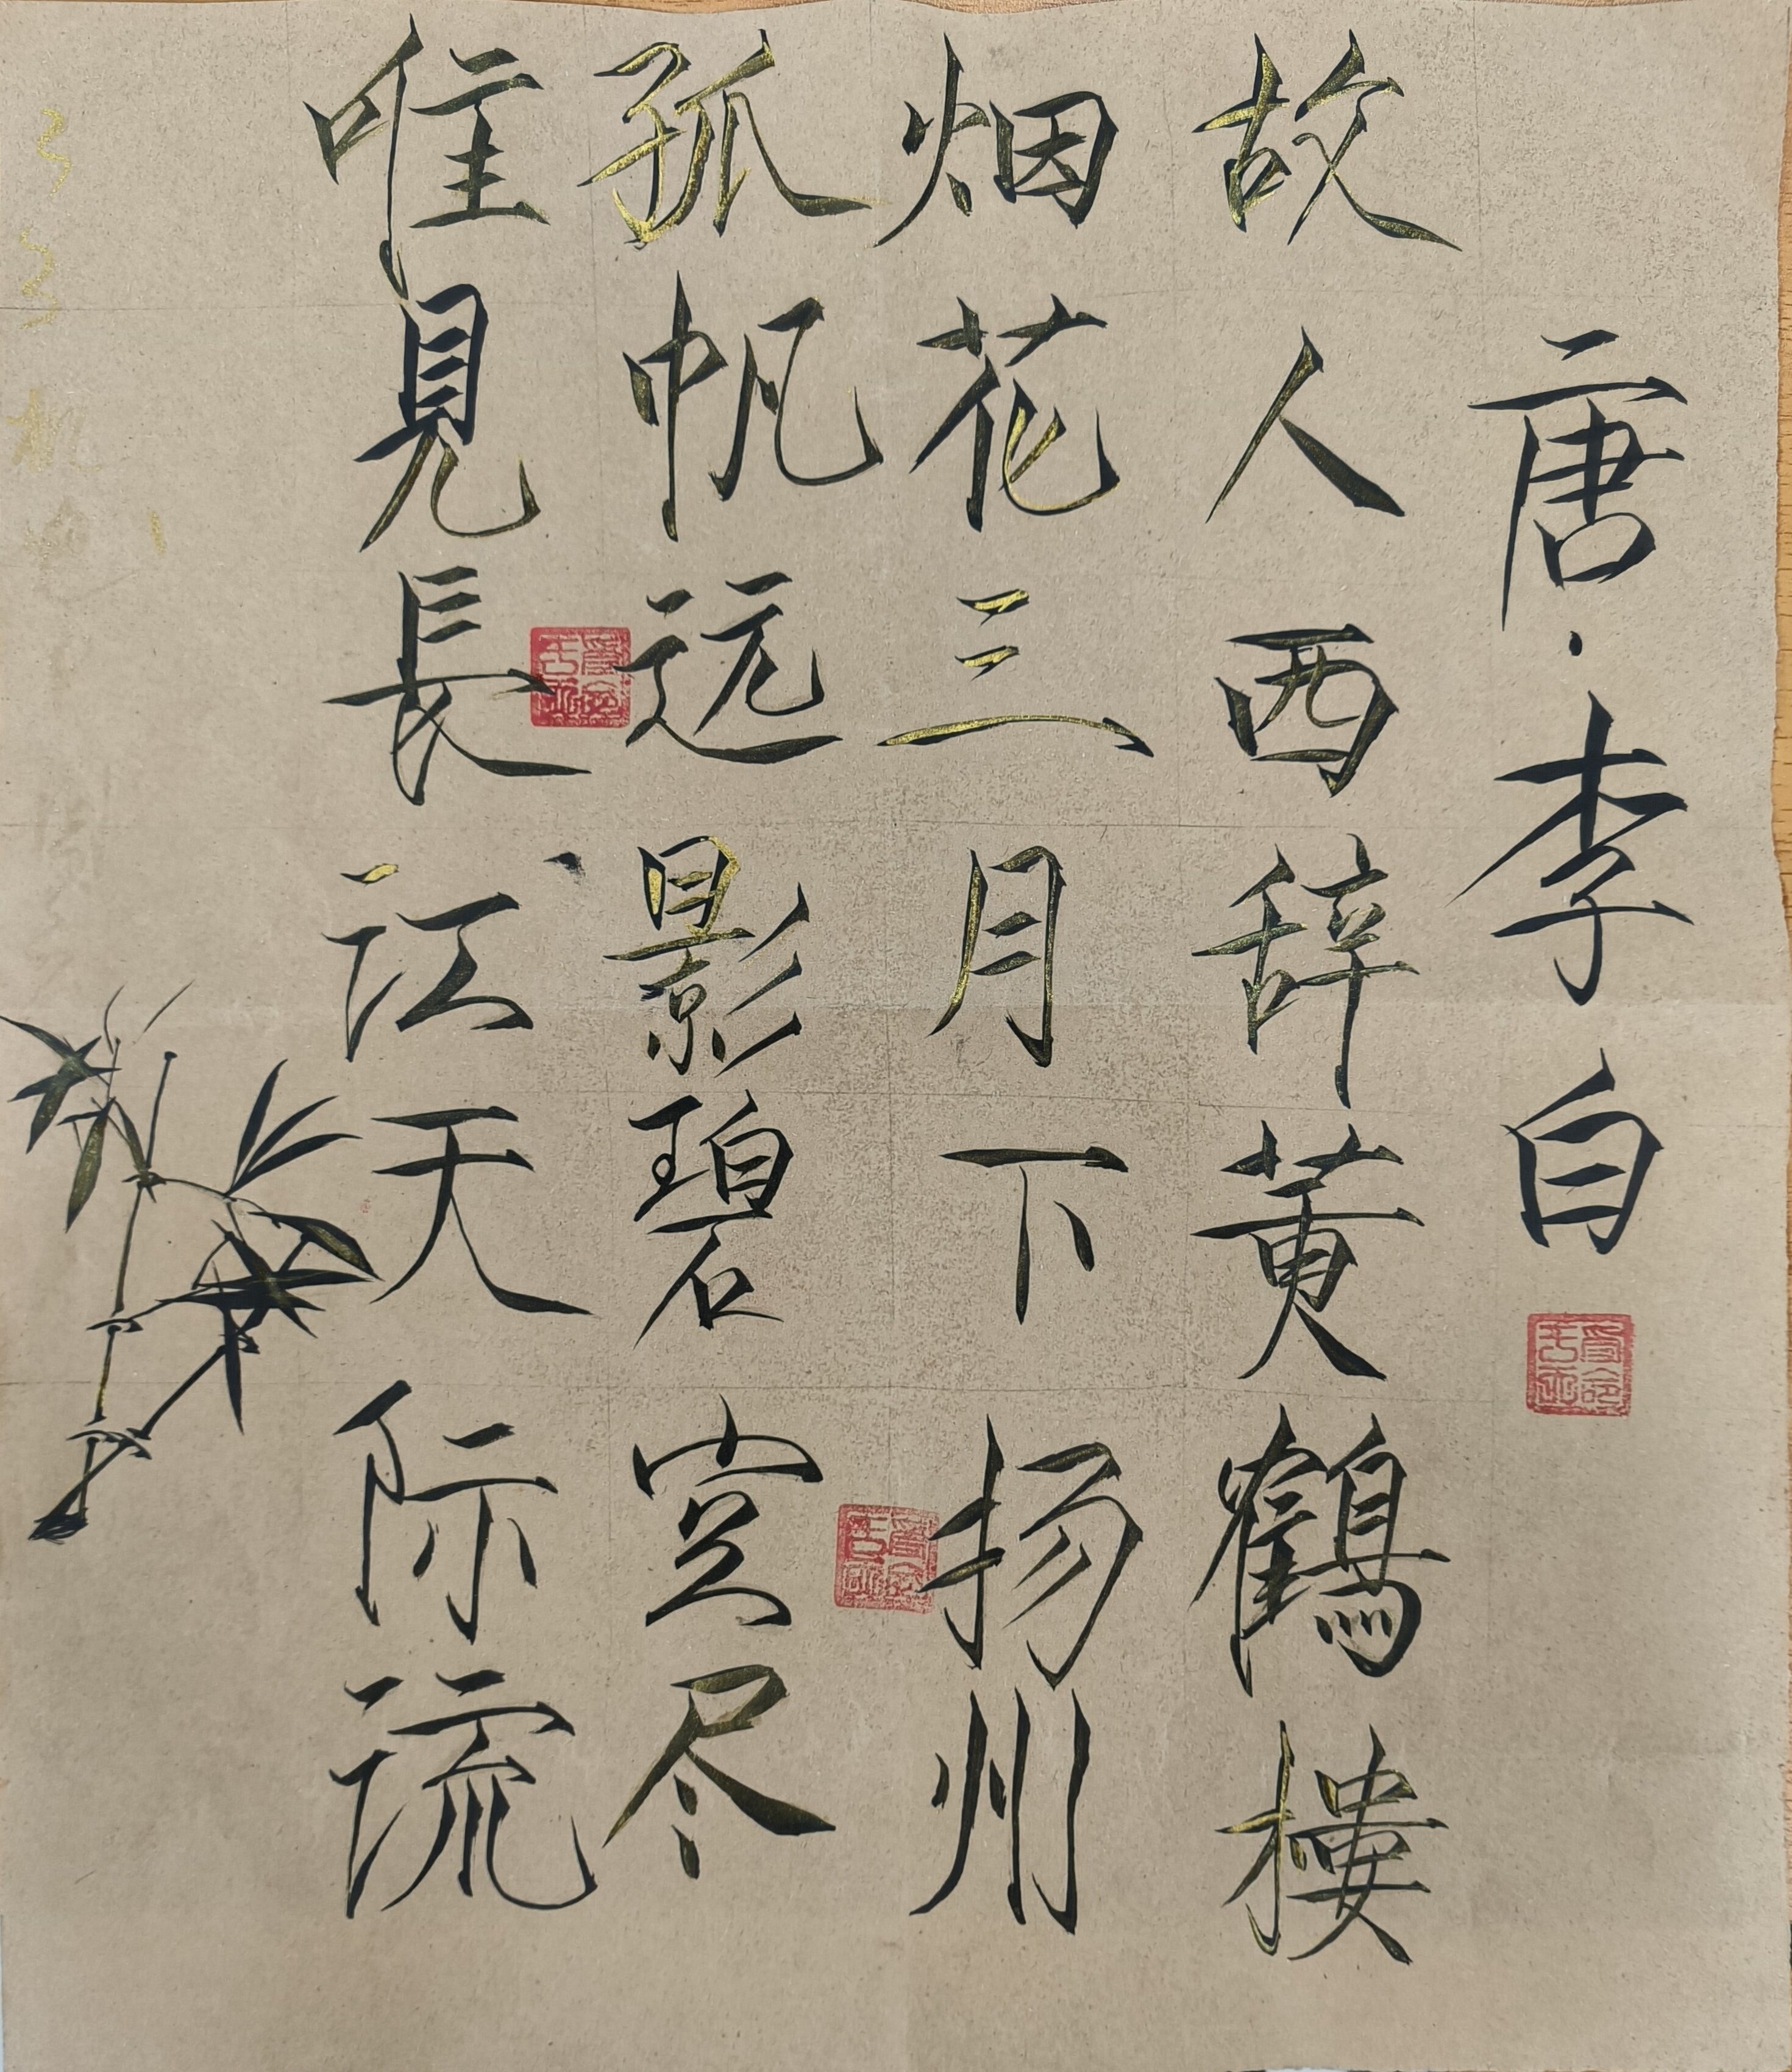 唐·李白
故人西辞黄鹤樓
烟花三月下扬州
孤帆远影碧空尽
唯見長江天际流